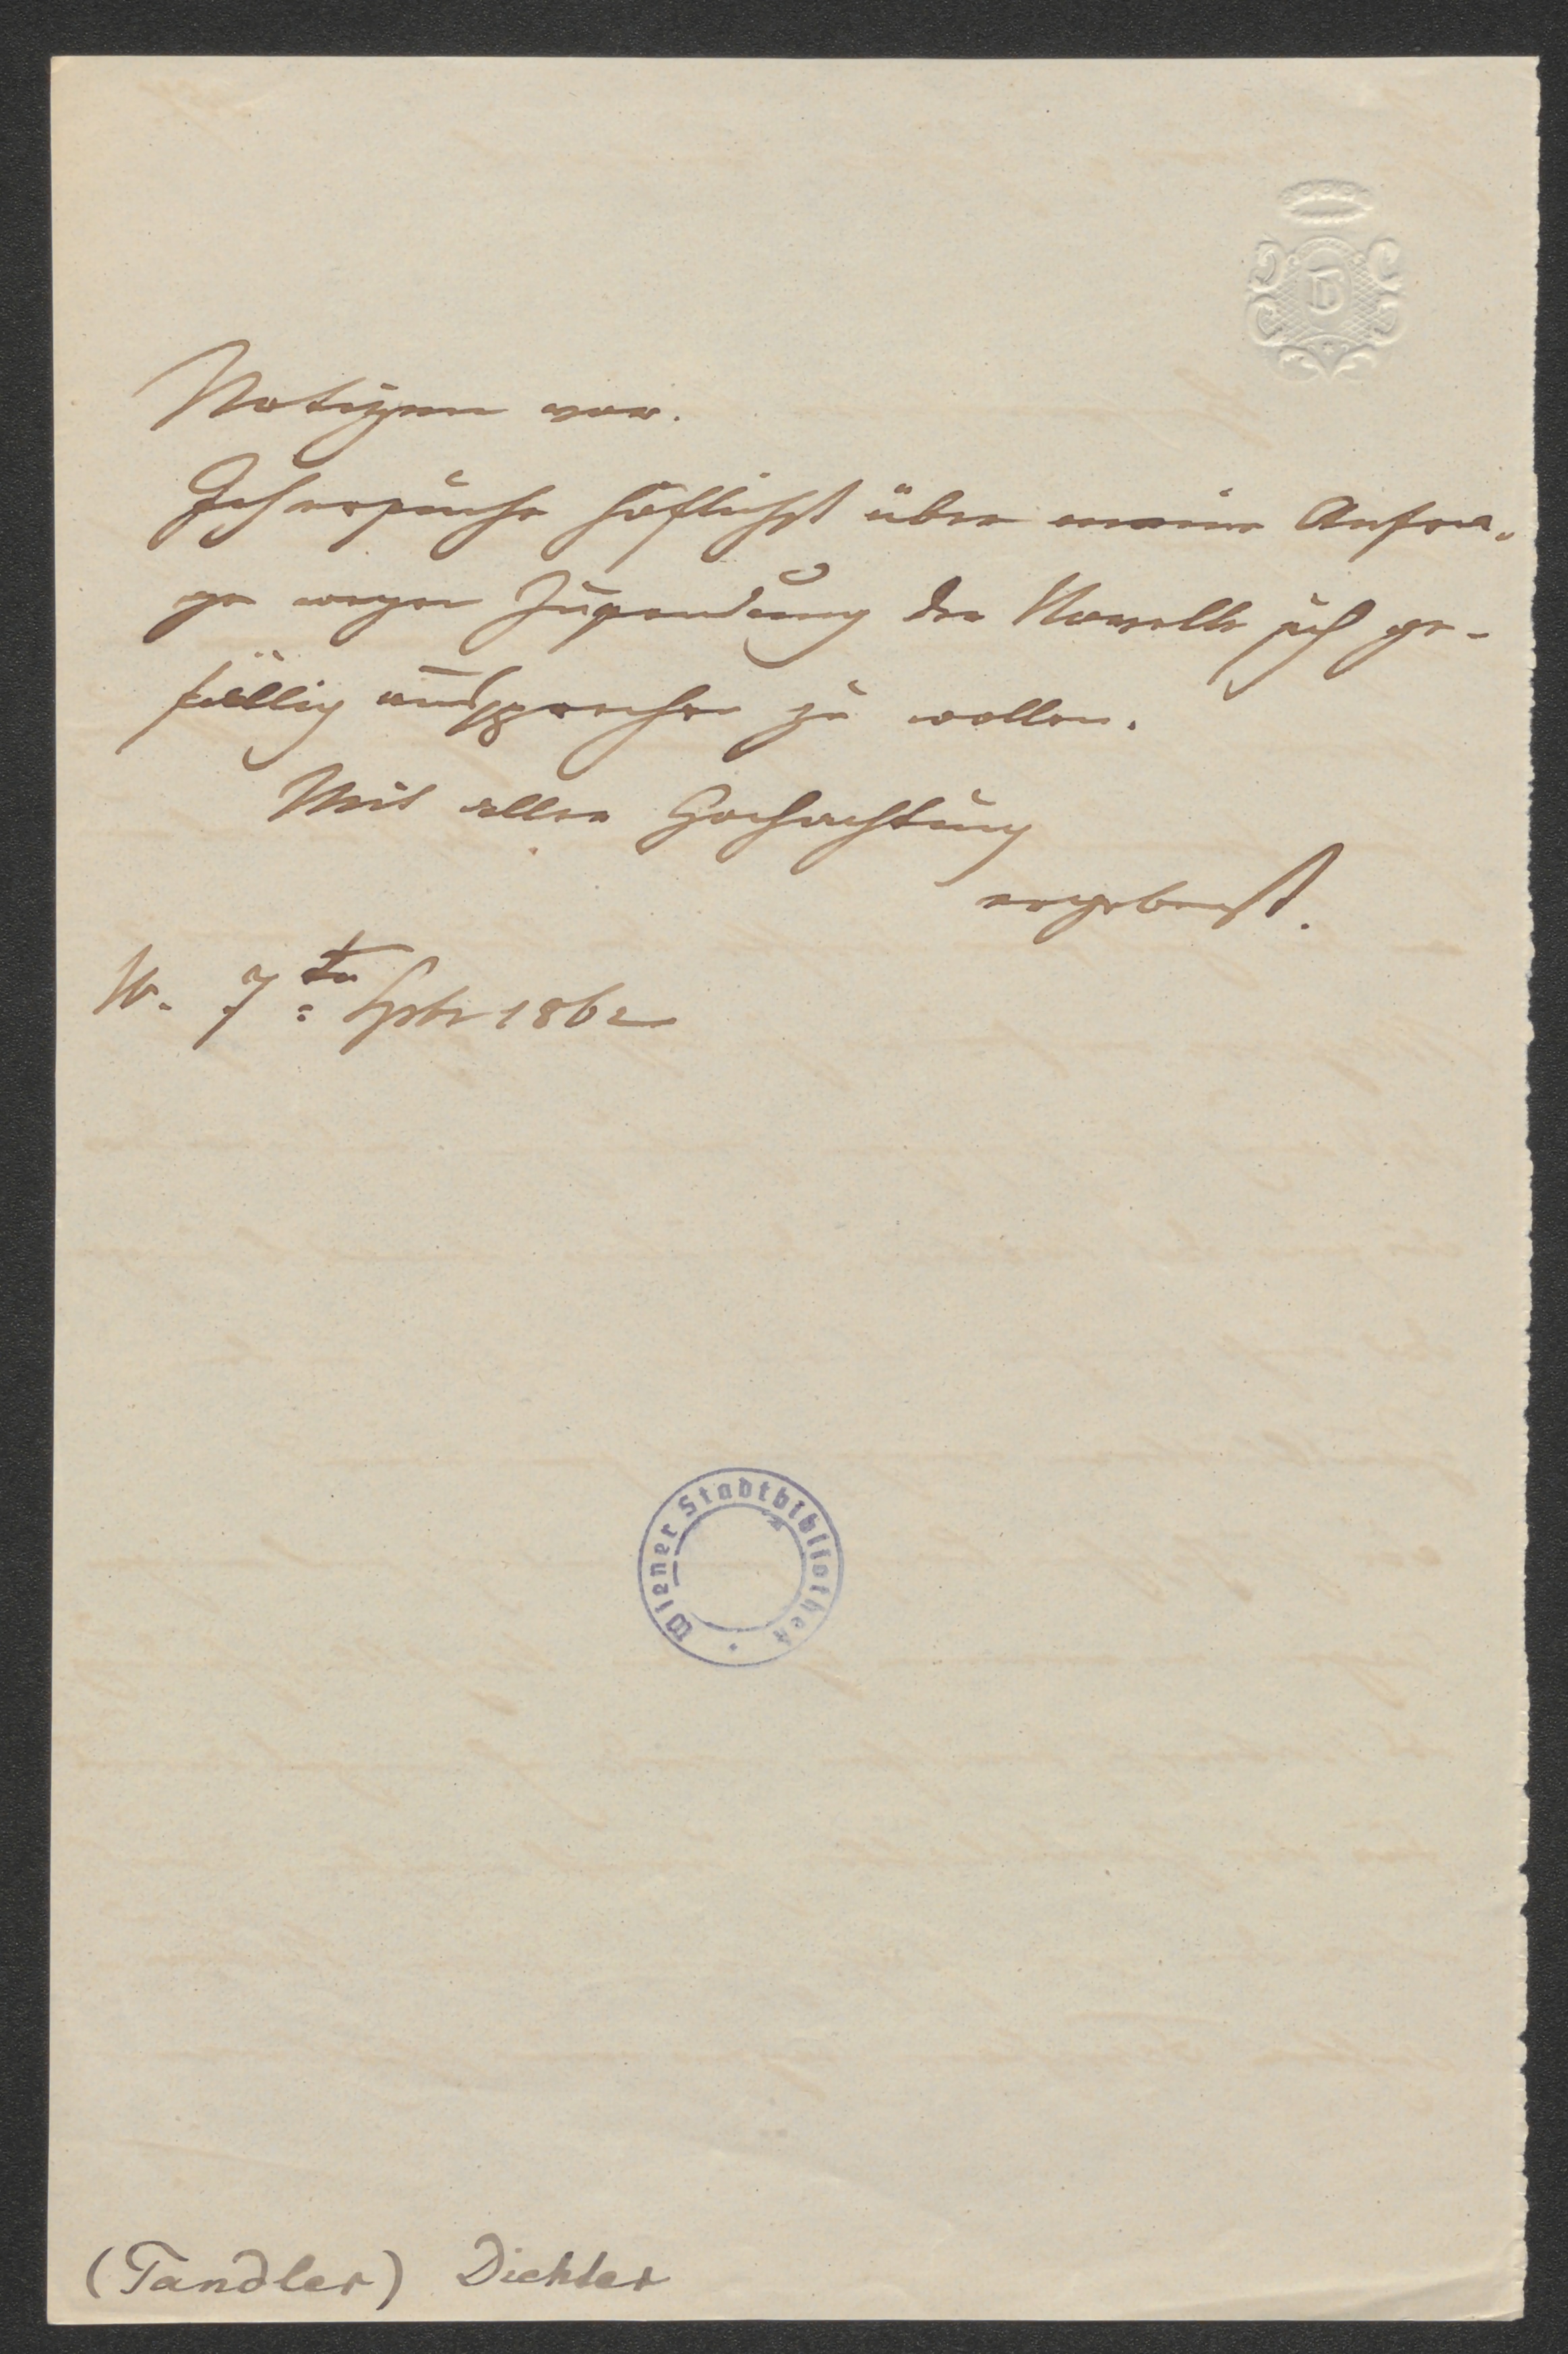 Notizen vor.
Ich ersuche höflichst über meine Anfra-
ge wegen Zusendung der Novelle sich ge-
fällig aussprechen zu wollen.
Mit aller Hochachtung
ergebenst.
W. 7ten Sptbr 1862
Wiener Stadtbibliothek
(Tandler) Dichter